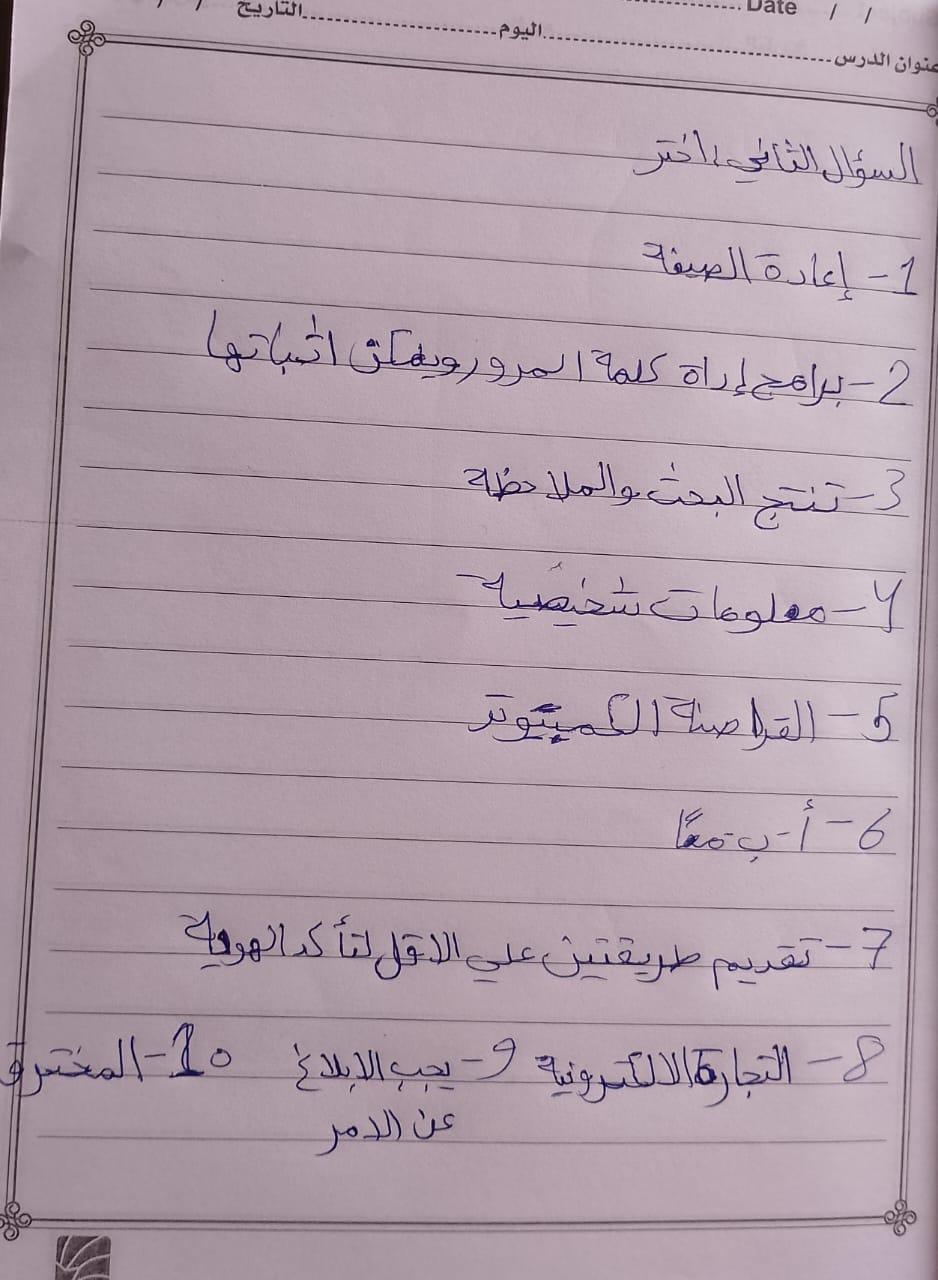 Date / /
التاريخ / /
عنوان الدرس اليوم
السؤال الثاني: اختر
1- إعادة الصيغة
2- برامج إداة كلمة المرور ويمكن اثباتها
3- تنتج البحث والملاحظة
4- معلومات شخصية
5- القراصنة الكمبيوتر
6- أ-ب معًا
7- تقديم طريقتين علي الاقل لتأكد الهوية
8- التجارة الالكترونية 9- يجب الابلاغ 10- المخترق
عن الامر